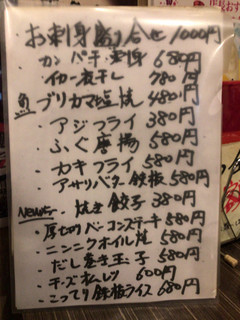 お刺身盛り合せ 1000円
・カンパチ刺身 680円
・イカ一夜干し 780円
魚 ブリカマ塩焼 480円
・アジフライ 380円
・ふぐ唐揚 580円
・カキフライ 580円
・アサリバター鉄板 580円
New!! 焼き餃子 380円
・厚切りベーコンステーキ 580円
・ニンニクホイル焼 580円
・だし巻き玉子 580円
・チーズオムレツ 600円
・こってり鉄板ライス 680円